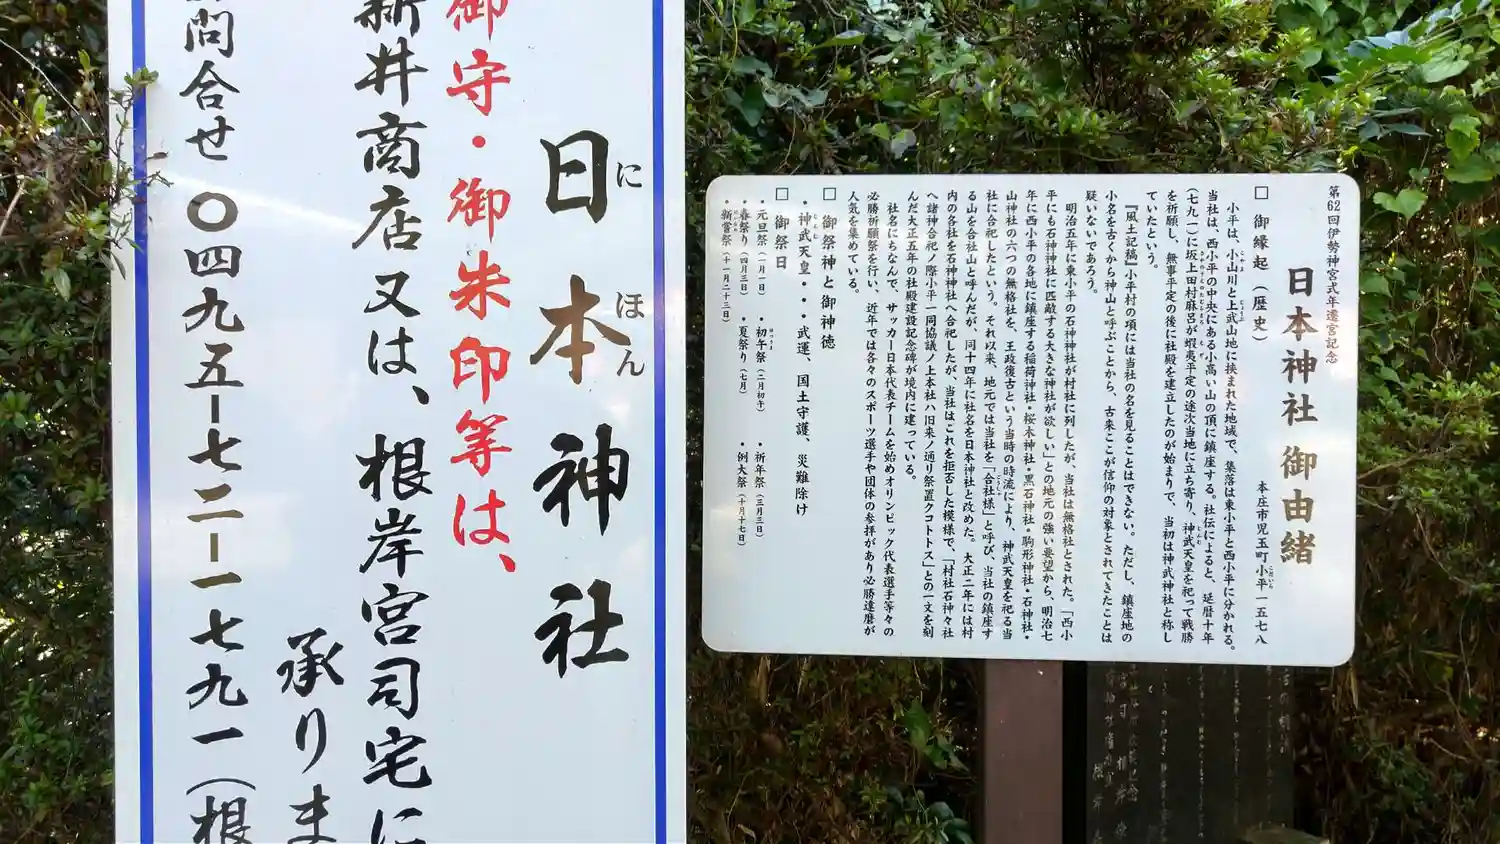 日本神社
にほん
御守・御朱印等は、
新井商店又は、根岸宮司宅に
承りま
問合せ 〇四九五ー七二ー一七九一（根
第62回伊勢神宮式年遷宮記念
日本神社 御由緒
本庄市児玉町小平一五七八
□ 御縁起（歴史）
小平は、小山川と上武山地に挟まれた地域で、集落は東小平と西小平に分かれる。
当社は、西小平の中央にある小高い山の頂に鎮座する。社伝によると、延暦十年
（七九一）に坂上田村麻呂が蝦夷平定の途次当地に立ち寄り、神武天皇を祀って戦勝
を祈願し、無事平定の後に社殿を建立したのが始まりで、当初は神武神社と称し
ていたという。
『風土記稿』小平村の項には当社の名を見ることはできない。ただし、鎮座地の
小名を古くから神山と呼ぶことから、古来ここが信仰の対象とされてきたことは
疑いないであろう。
明治五年に東小平の石神神社が村社に列したが、当社は無格社とされた。「西小
平にも石神神社に匹敵する大きな神社が欲しい」との地元の強い要望から、明治七
年に西小平の各地に鎮座する稲荷神社・桜木神社・黒石神社・駒形神社・石神社・
山神社の六つの無格社を、王政復古という当時の時流により、神武天皇を祀る当
社に合祀したという。それ以来、地元では当社を「合社様」と呼び、当社の鎮座す
る山を合社山と呼んだが、同十四年に社名を日本神社と改めた。大正二年には村
内の各社を石神神社へ合祀したが、当社はこれを拒否した模様で、「村社石神々社
へ諸神合祀ノ際小平一同協議ノ上本社ハ旧来ノ通リ祭置クコトトス」との一文を刻
んだ大正五年の社殿建設記念碑が境内に建っている。
社名にちなんで、サッカー日本代表チームを始めオリンピック代表選手等々の
必勝祈願祭を行い、近年では各々のスポーツ選手や団体の参拝があり必勝達磨が
人気を集めている。
□ 御祭神と御神徳
・神武天皇・・・武運、国土守護、災難除け
□ 御祭日
・元旦祭（一月一日） ・初午祭（二月初午） ・祈年祭（三月三日）
・春祭り（四月三日） ・夏祭り（七月） ・例大祭（十月十七日）
・新嘗祭（十一月二十三日）